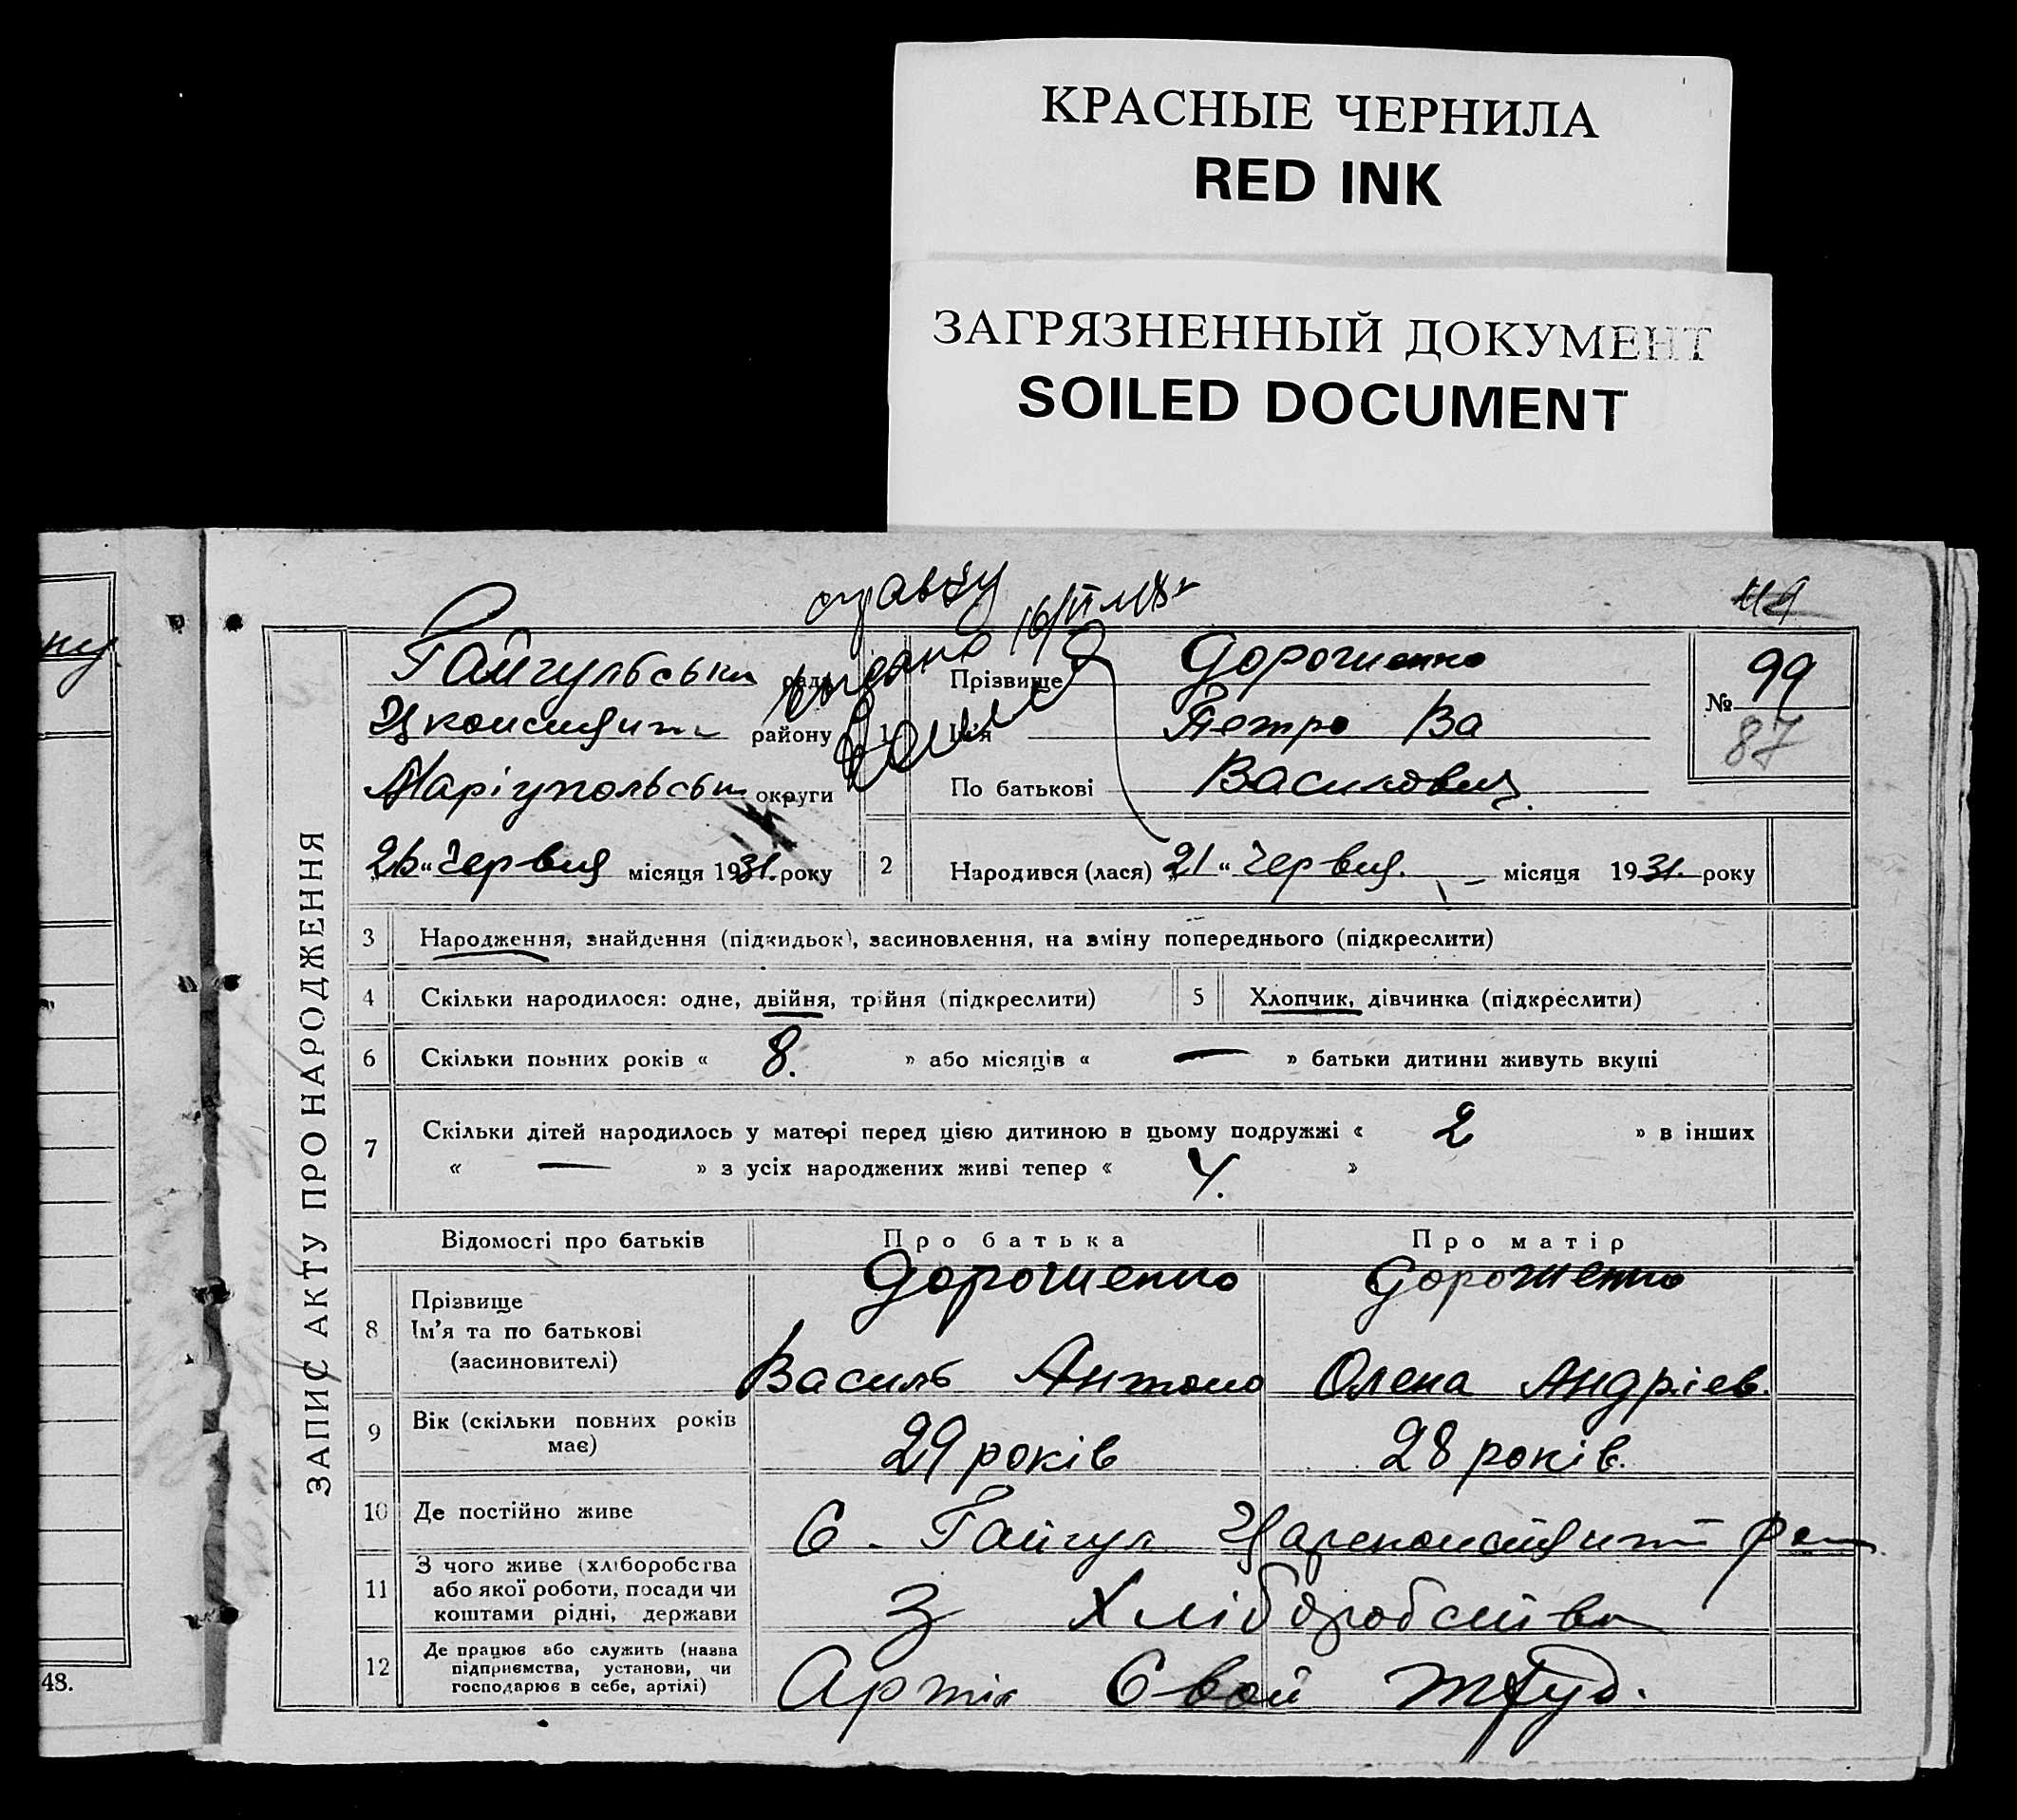 КРАСНЫЕ ЧЕРНИЛА
RED INK
ЗАГРЯЗНЕННЫЙ ДОКУМЕНТ
SOILED DOCUMENT
ку
48.
справку
видано 16/VI
44
ЗАПИС АКТУ ПРО НАРОДЖЕННЯ
Гайгульськи рада
району
Маріупольськ округи
„25“ Червня місяця 1931. року
1
Прізвище Дорошенко
Ім'я Петро Ва
По батькові Васильович.
№ 99
87
2 Народився (лася) „21“ Червня. місяця 1931. року
3 Народження, знайдення (підкидьок), засиновлення, на зміну попереднього (підкреслити)
4 Скільки народилося: одне, двійня, трійня (підкреслити) 5 Хлопчик, дівчинка (підкреслити)
6 Скільки повних років « 8. » або місяців « — » батьки дитини живуть вкупі
7 Скільки дітей народилось у матері перед цією дитиною в цьому подружжі « 2 » в інших
« — » з усіх народжених живі тепер « 4. »
Відомості про батьків Про батька Про матір
8 Прізвище Дорошенко Дорошенко
Ім'я та по батькові
(засиновителі) Василь Антоно Олена Андріев.
9 Вік (скільки повних років
має) 29 років 28 років.
10 Де постійно живе С. Гайгул
11 З чого живе (хліборобства
або якої роботи, посади чи
коштами рідні, держави З Хліборобства
12 Де працює або служить (назва
підприємства, установи, чи
господарює в себе, артілі) Артіл Свой труд.